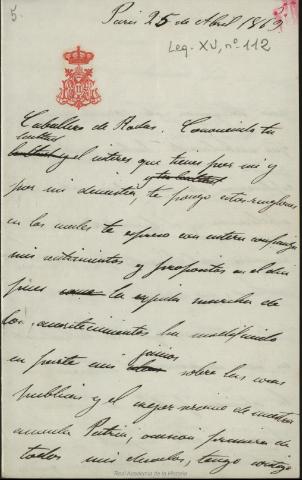 5.
Paris 25 de Abril 1869
Leg. XV, nº 112
Caballero de Rodas. Conociendo tu
lealtad y el interes que tienes por mi y
por mi dinastía, te pongo estos renglones
en los cuales te espreso con entera confianza
mis sentimientos y propositos en el dia
pues la rapida marcha de
los acontecimientos ha modificado
en parte mis juicios sobre las cosas
publicas y el mejor servicio de nuestra
amada Patria, ocasion primera de
todos mis desvelos, tengo contigo
Real Academia de la Historia